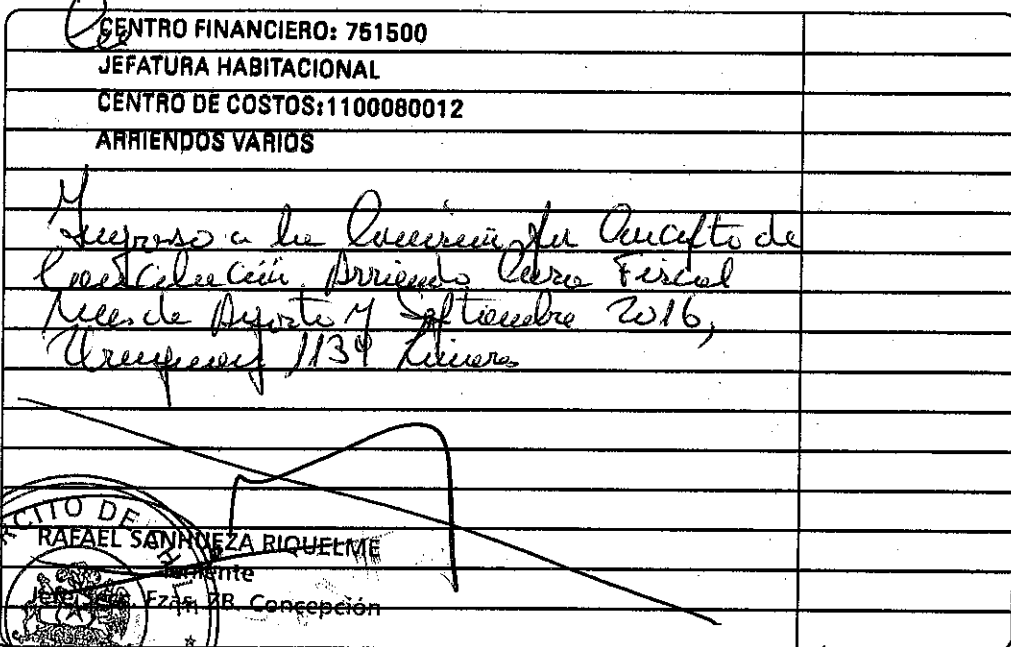 CENTRO FINANCIERO: 751500
JEFATURA HABITACIONAL
CENTRO DE COSTOS:1100080012
ARRIENDOS VARIOS
Ingreso a la Comisión por Concepto de
Cancelación Arriendo Casa Fiscal
Mes de Agosto y Septiembre 2016,
Uruguay 1134 Linares
RAFAEL SANHUEZA RIQUELME
Teniente
Jefe Fzas. ZR. Concepción